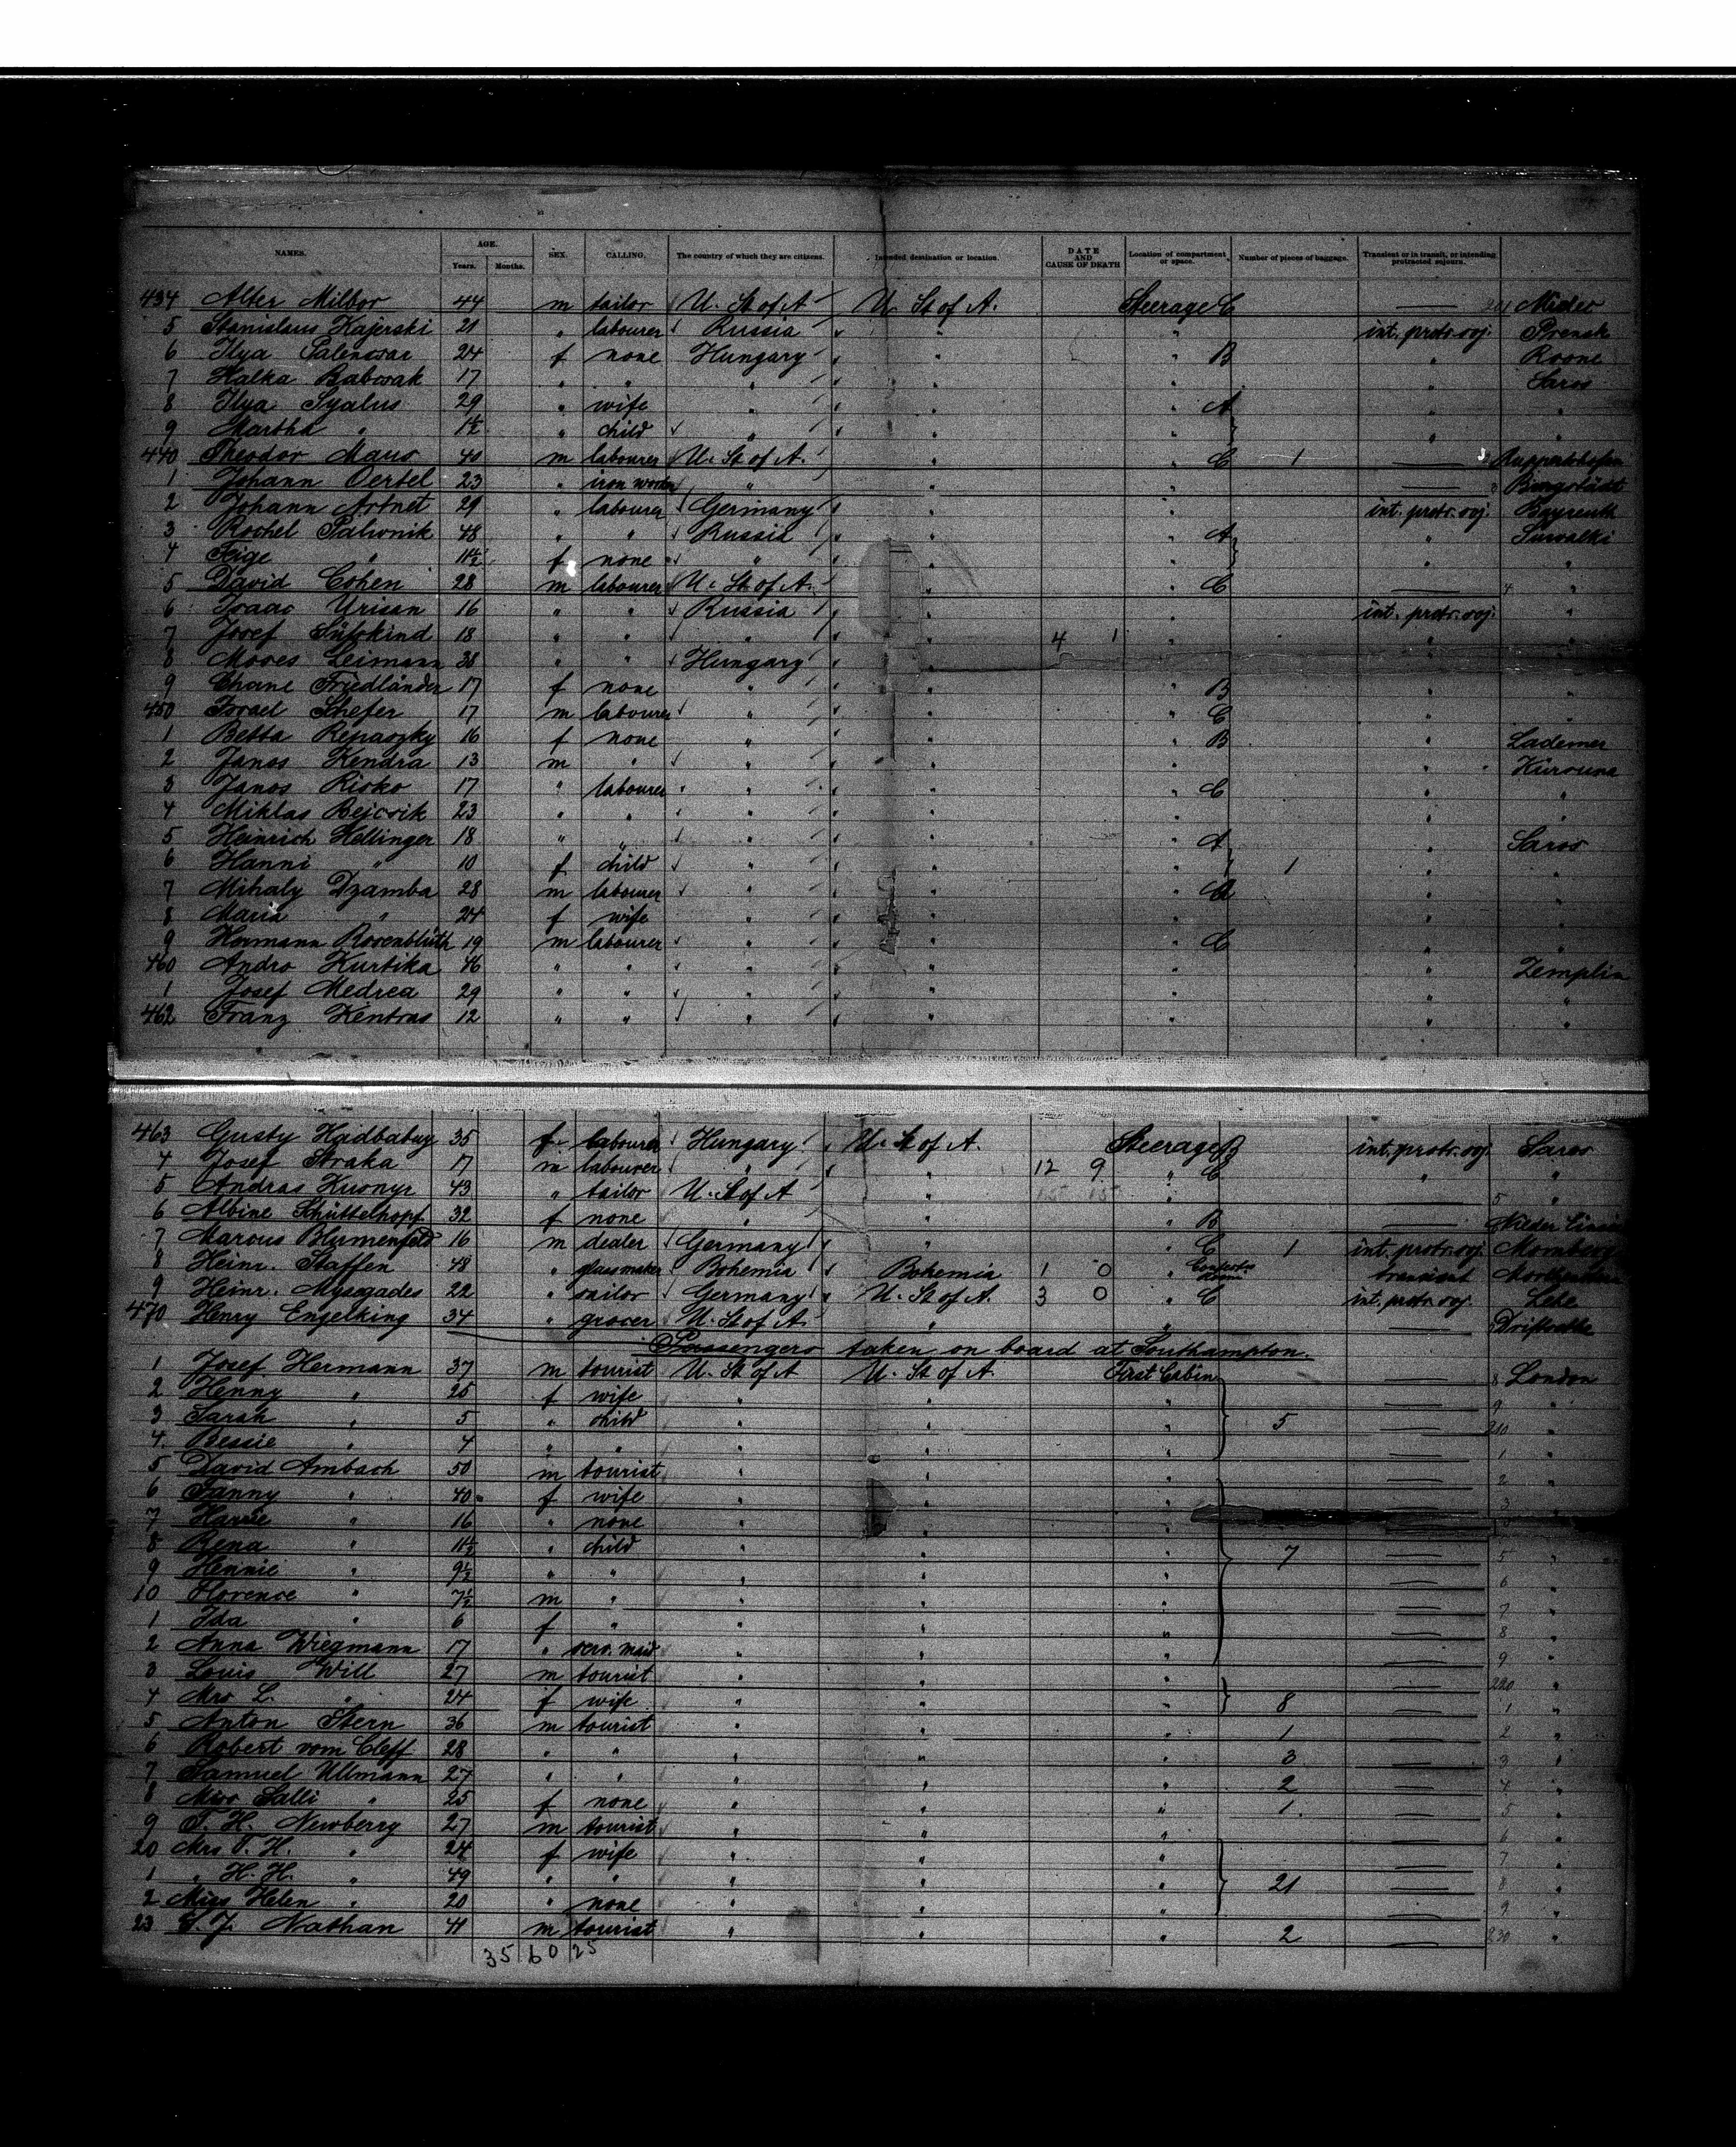 NAMES. AGE. Years. Months. SEX. CALLING. The country of which they are citizens. Intended destination or location. DATE AND CAUSE OF DEATH Location of compartment or space. Number of pieces of baggage. Transient or in transit, or intending protracted sojourn.
434 Alter Milbor 44 m tailor U. St of A U. St of A. Steerage C —
5 Stanislaus Kajerski 21 " labourer Russia " " int. protr. soj. Prensk
6 Ilya 24 f none Hungary " " B "
7 Halka Babcsak 17 " " " " " " Saros
8 Ilya Syalus 29 " wife " " " A " "
9 Martha " 1½ " child " " " " "
440 Theodor Maus 40 m labourer U. St of A. " " C 1 — Ruppertshofen
1 Johann Oertel 23 " iron worker " " " —
2 Johann Artnet 29 " labourer Germany " " int. protr. soj. Bayreuth
3 Rochel Palwonik 48 " " Russia " " A " Suwalki
4 Feige " 11½ f none " " " " "
5 David Cohen 28 m labourer U. St of A. " " C 4 "
6 Isaac Urisan 16 " " Russia " " int. protr. soj. "
7 Josef Süsskind 18 " " " " 4 1 " " "
8 Moses Leimann 38 " " Hungary " " " "
9 Chane Friedländer 17 f none " " " B " "
450 Israel Shefer 17 m labourer " " " C " "
1 Betta Repaszky 16 f none " " " B " Lademer
2 Janos Kendra 13 m " " " " " Kurouna
3 Janos Risko 17 " labourer " " " C " "
4 Miklas Bejcsik 23 " " " " " " "
5 Heinrich Hellinger 18 " " " " " A " Saros
6 Hanni " 10 f child " " " 1 " "
7 Mihaly Dzamba 28 m labourer " " " A " "
8 Maria " 24 f wife " " " " "
9 Hermann Rosenblüth 19 m labourer " " " C " "
460 Andro Kurtika 46 " " " " " " Zemplin
1 Josef Medrea 29 " " " " " " "
462 Franz Kentras 12 " " " " " " "
463 Gusty Hadbabuy 35 f labourer Hungary U. St of A. Steerage B int. protr. soj. Saros
4 Josef Straka 17 m labourer " " 12 9 " C " "
5 Andras Kusnyr 43 " tailor U. St of A " " 5 "
6 Albine Schüttelhopf 32 f none " " B —
7 Marcus Blumenfeld 16 m dealer Germany " " C 1 int. protr. soj. Momberg
8 Heinr. Staffen 48 " glassmaker Bohemia Bohemia 1 0 " transient
9 Heinr. Mysegades 22 " sailor Germany U. St of A. 3 0 " C int. protr. soj. Lehe
470 Henry Engelking 34 " grocer U. St of A " " — Driftsethe
Passengers taken on board at Southampton.
1 Josef Hermann 37 m tourist U. St of A U. St of A. First Cabin — 8 London
2 Henny " 25 f wife " " " — 9 "
3 Sarah " 5 " child " " " 5 — 210 "
4 Bessie " 4 " " " " " — 1 "
5 David Ambach 50 m tourist " " " — 2 "
6 Fanny " 40 f wife " " " — 3 "
7 " 16 " none " " "
8 Rena " 11½ " child " " " 7 — 5 "
9 Hennie " 9½ " " " " " — 6 "
10 Florence " 7½ m " " " " — 7 "
1 Ida " 6 f " " " " — 8 "
2 Anna Wiegmann 17 " serv. maid " " " — 9 "
3 Louis Will 27 m tourist " " " — 220 "
4 Mrs L. " 24 f wife " " " 8 — 1 "
5 Anton Stern 36 m tourist " " " 1 — 2 "
6 Robert vom Cleff 28 " " " " " 3 — 3 "
7 Samuel Ullmann 27 " " " " " 2 — 4 "
8 Miss Salli " 25 f none " " " 1. — 5 "
9 T. H. Newberry 27 m tourist " " " — 6 "
20 Mrs T. H. " 24 f wife " " " — 7 "
1 " H. H. " 49 " " " " " 21 — 8 "
2 Miss Helen " 20 " none " " " — 9 "
23 Nathan 41 m tourist " " " 2 — 230 "
35 60 25